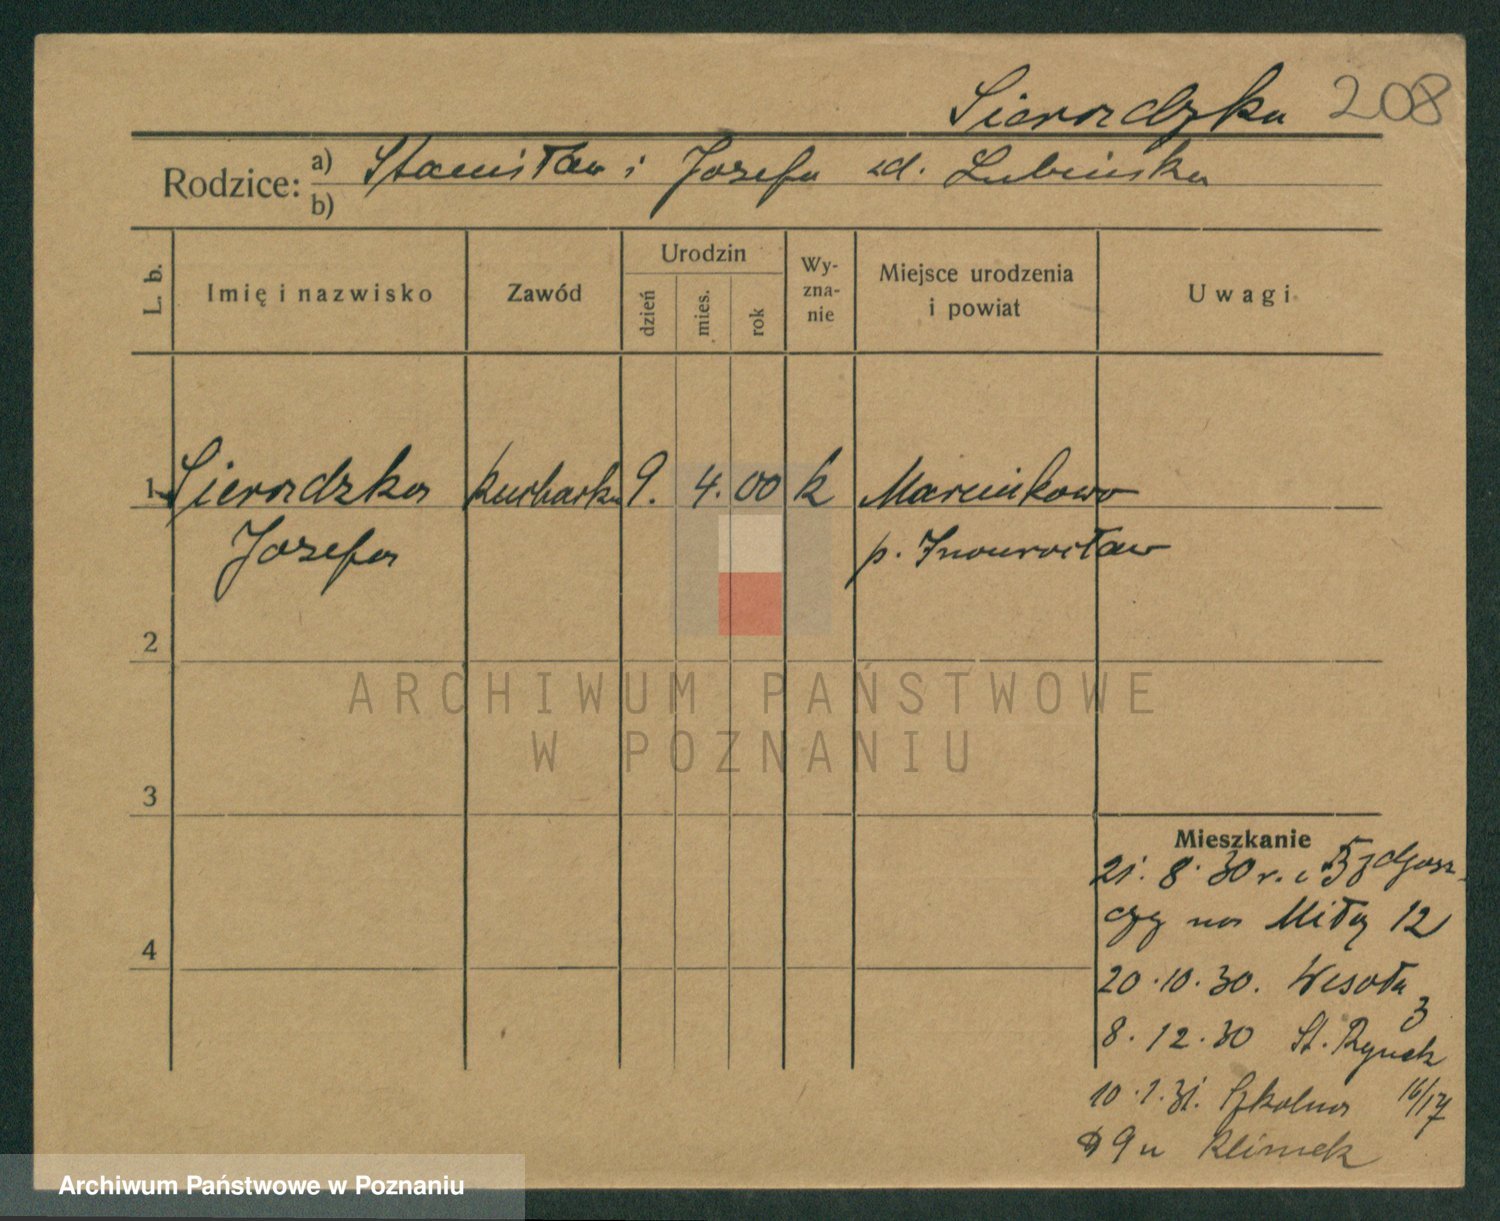 Sieradzka 208
Rodzice: a) Stanisław i Józefa zd. Lubińska
b)
L. b. Imię i nazwisko Zawód Urodzin dzień mies. rok Wyzna-nie Miejsce urodzenia i powiat Uwagi
1 Sieradzka kucharka 9. 4. 00 k Marcinkowo
Józefa p. Inowrocław
2
ARCHIWUM PAŃSTWOWE
W POZNANIU
3
Mieszkanie
21. 8. 30 r. z Bydgosz-
czy na Miłą 12
4
20.10.30. Wesoła 3
8.12.30 St. Rynek
10.1.31. Szkolna 16/17
9 u Klimek
Archiwum Państwowe w Poznaniu